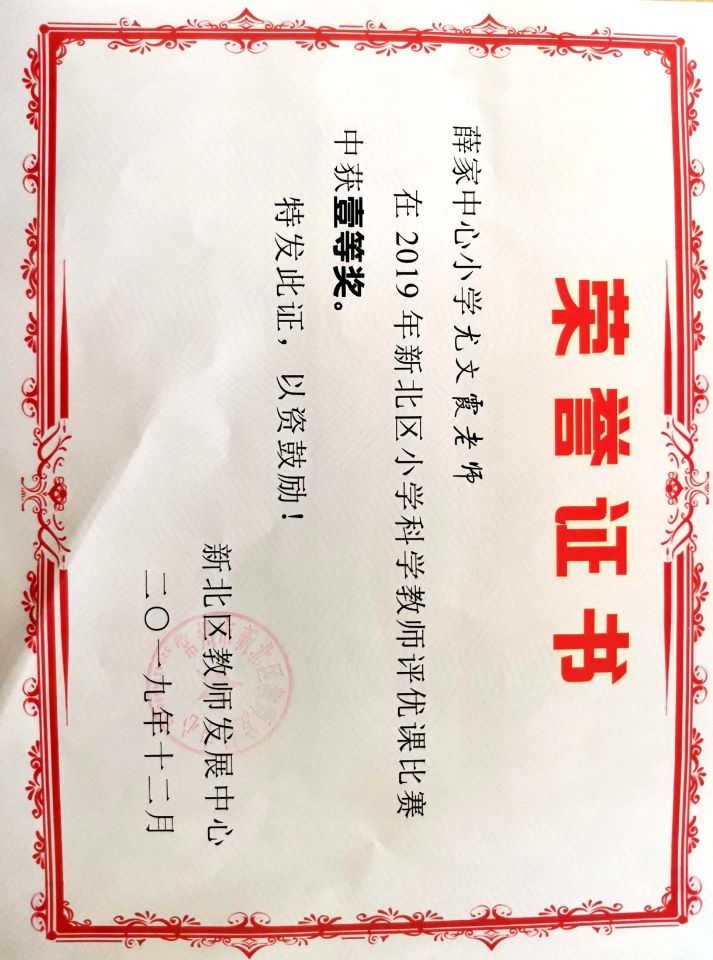 荣誉证书
薛家中心小学尤文霞老师
在2019年新北区小学科学教师评优课比赛
中获壹等奖。
特发此证，以资鼓励！
新北区教师发展中心
二〇一九年十二月